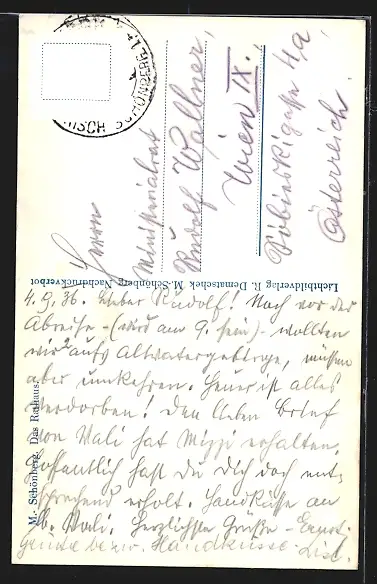 Herrn
Ministerialrat
Rudolf Wallner,
Wien IX.,
Sobieskigasse 4a,
Österreich.
Lichtbildverlag R. Dematschek, M.-Schönberg. Nachdruck verbot
M.-Schönberg. Das Rathaus.
4. 9. 36. Lieber Rudolf! Noch vor der
Abreise - (wird am 9. sein) - wollten
wir aufs Altvatergebirge, müssen
aber umkehren. Heuer ist alles
verdorben! Den lieben Brief
von Mali hat Mizzi erhalten.
Hoffentlich hast du dich doch ent-
sprechend erholt. Handküsse an
Mali. Herzlichste Grüße - Ernst.
Handküsse